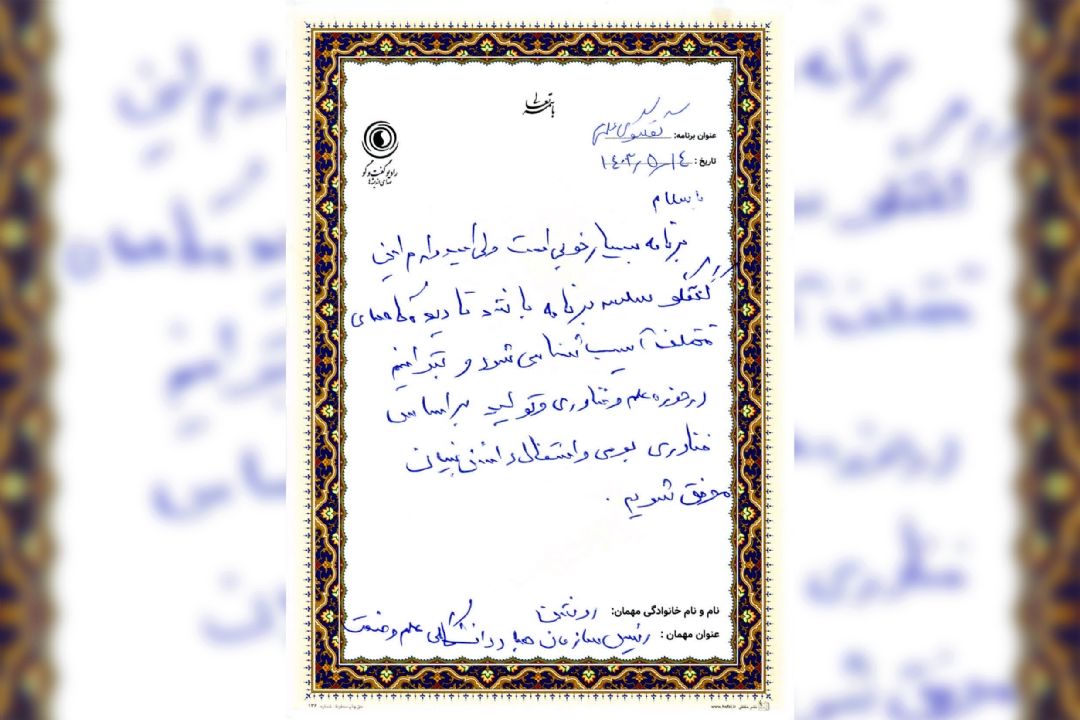 باسمه تعالی
عنوان برنامه: گفتگوی علمی
تاریخ: ۱۴۰۳/۵/۱۴
رادیو گفت و گو
با سلام
برنامه بسیار خوبی است ولی امیدوارم این
گفتگو سلسه برنامه باشد تا دیدگاههای
مختلف آسیب شناسی شود و بتوانیم
در حوزه علم و فناوری و تولید بر اساس
فناوری بومی و اشتغال دانش بنیان
موفق شویم .
نام و نام خانوادگی مهمان:
عنوان مهمان : رئیس سازمان جهاد دانشگاهی علم و صنعت
www.hafez.ir